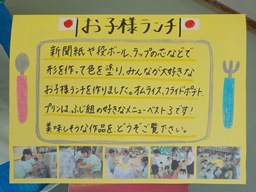 お子様ランチ
新聞紙や段ボール、ラップの芯などで
形を作って色を塗り、みんなが大好きな
お子様ランチを作りました。オムライス、フライドポテト、
プリンは、ふじ組の好きなメニューベスト3です!
美味しそうな作品を、どうぞご覧下さい。